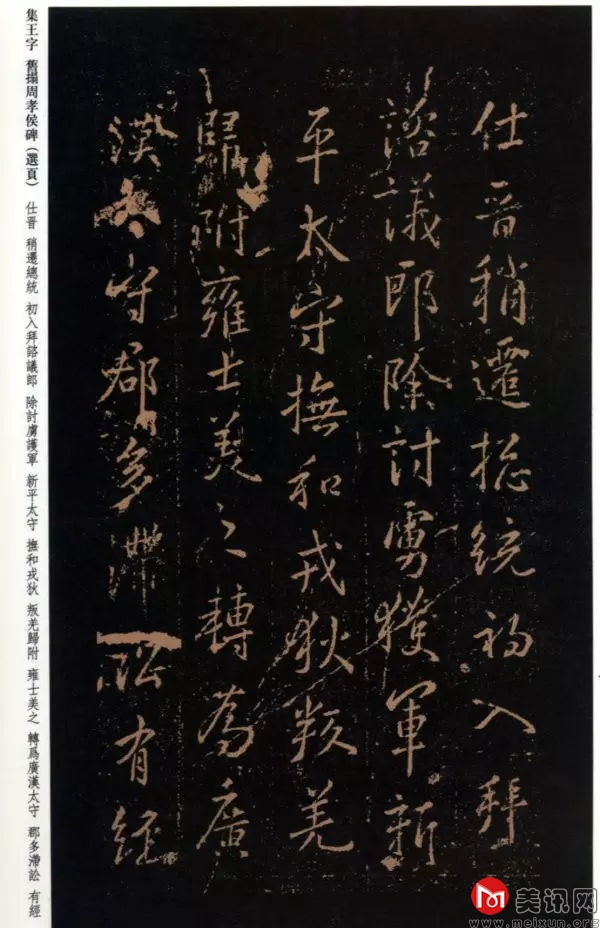 集王字 舊搨周孝侯碑（選頁） 仕晋 稍遷總統 初入拜諮議郎 除討虜護軍 新平太守 撫和戎狄 叛羌歸附 雍士美之 轉爲廣漢太守 郡多滯訟 有經
仕晋稍遷捴統初入拜
諮議郎除討虜護軍新
平太守撫和戎狄叛羌
歸附雍士美之轉為廣
漢太守郡多滯訟有經
美讯网
www.meixun.org